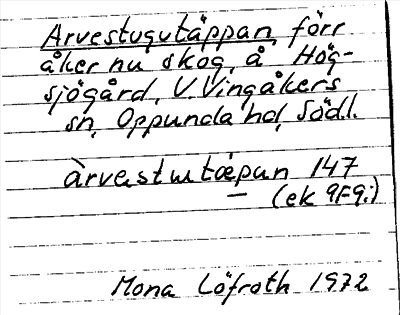 Arvestugutäppan, förr
åker nu skog, å Hög-
sjögård, V. Vingåkers
sn, Oppunda hd, Södl.
àrvastutæpan 147
(ek 9F9i)
Mona Löfroth 1972